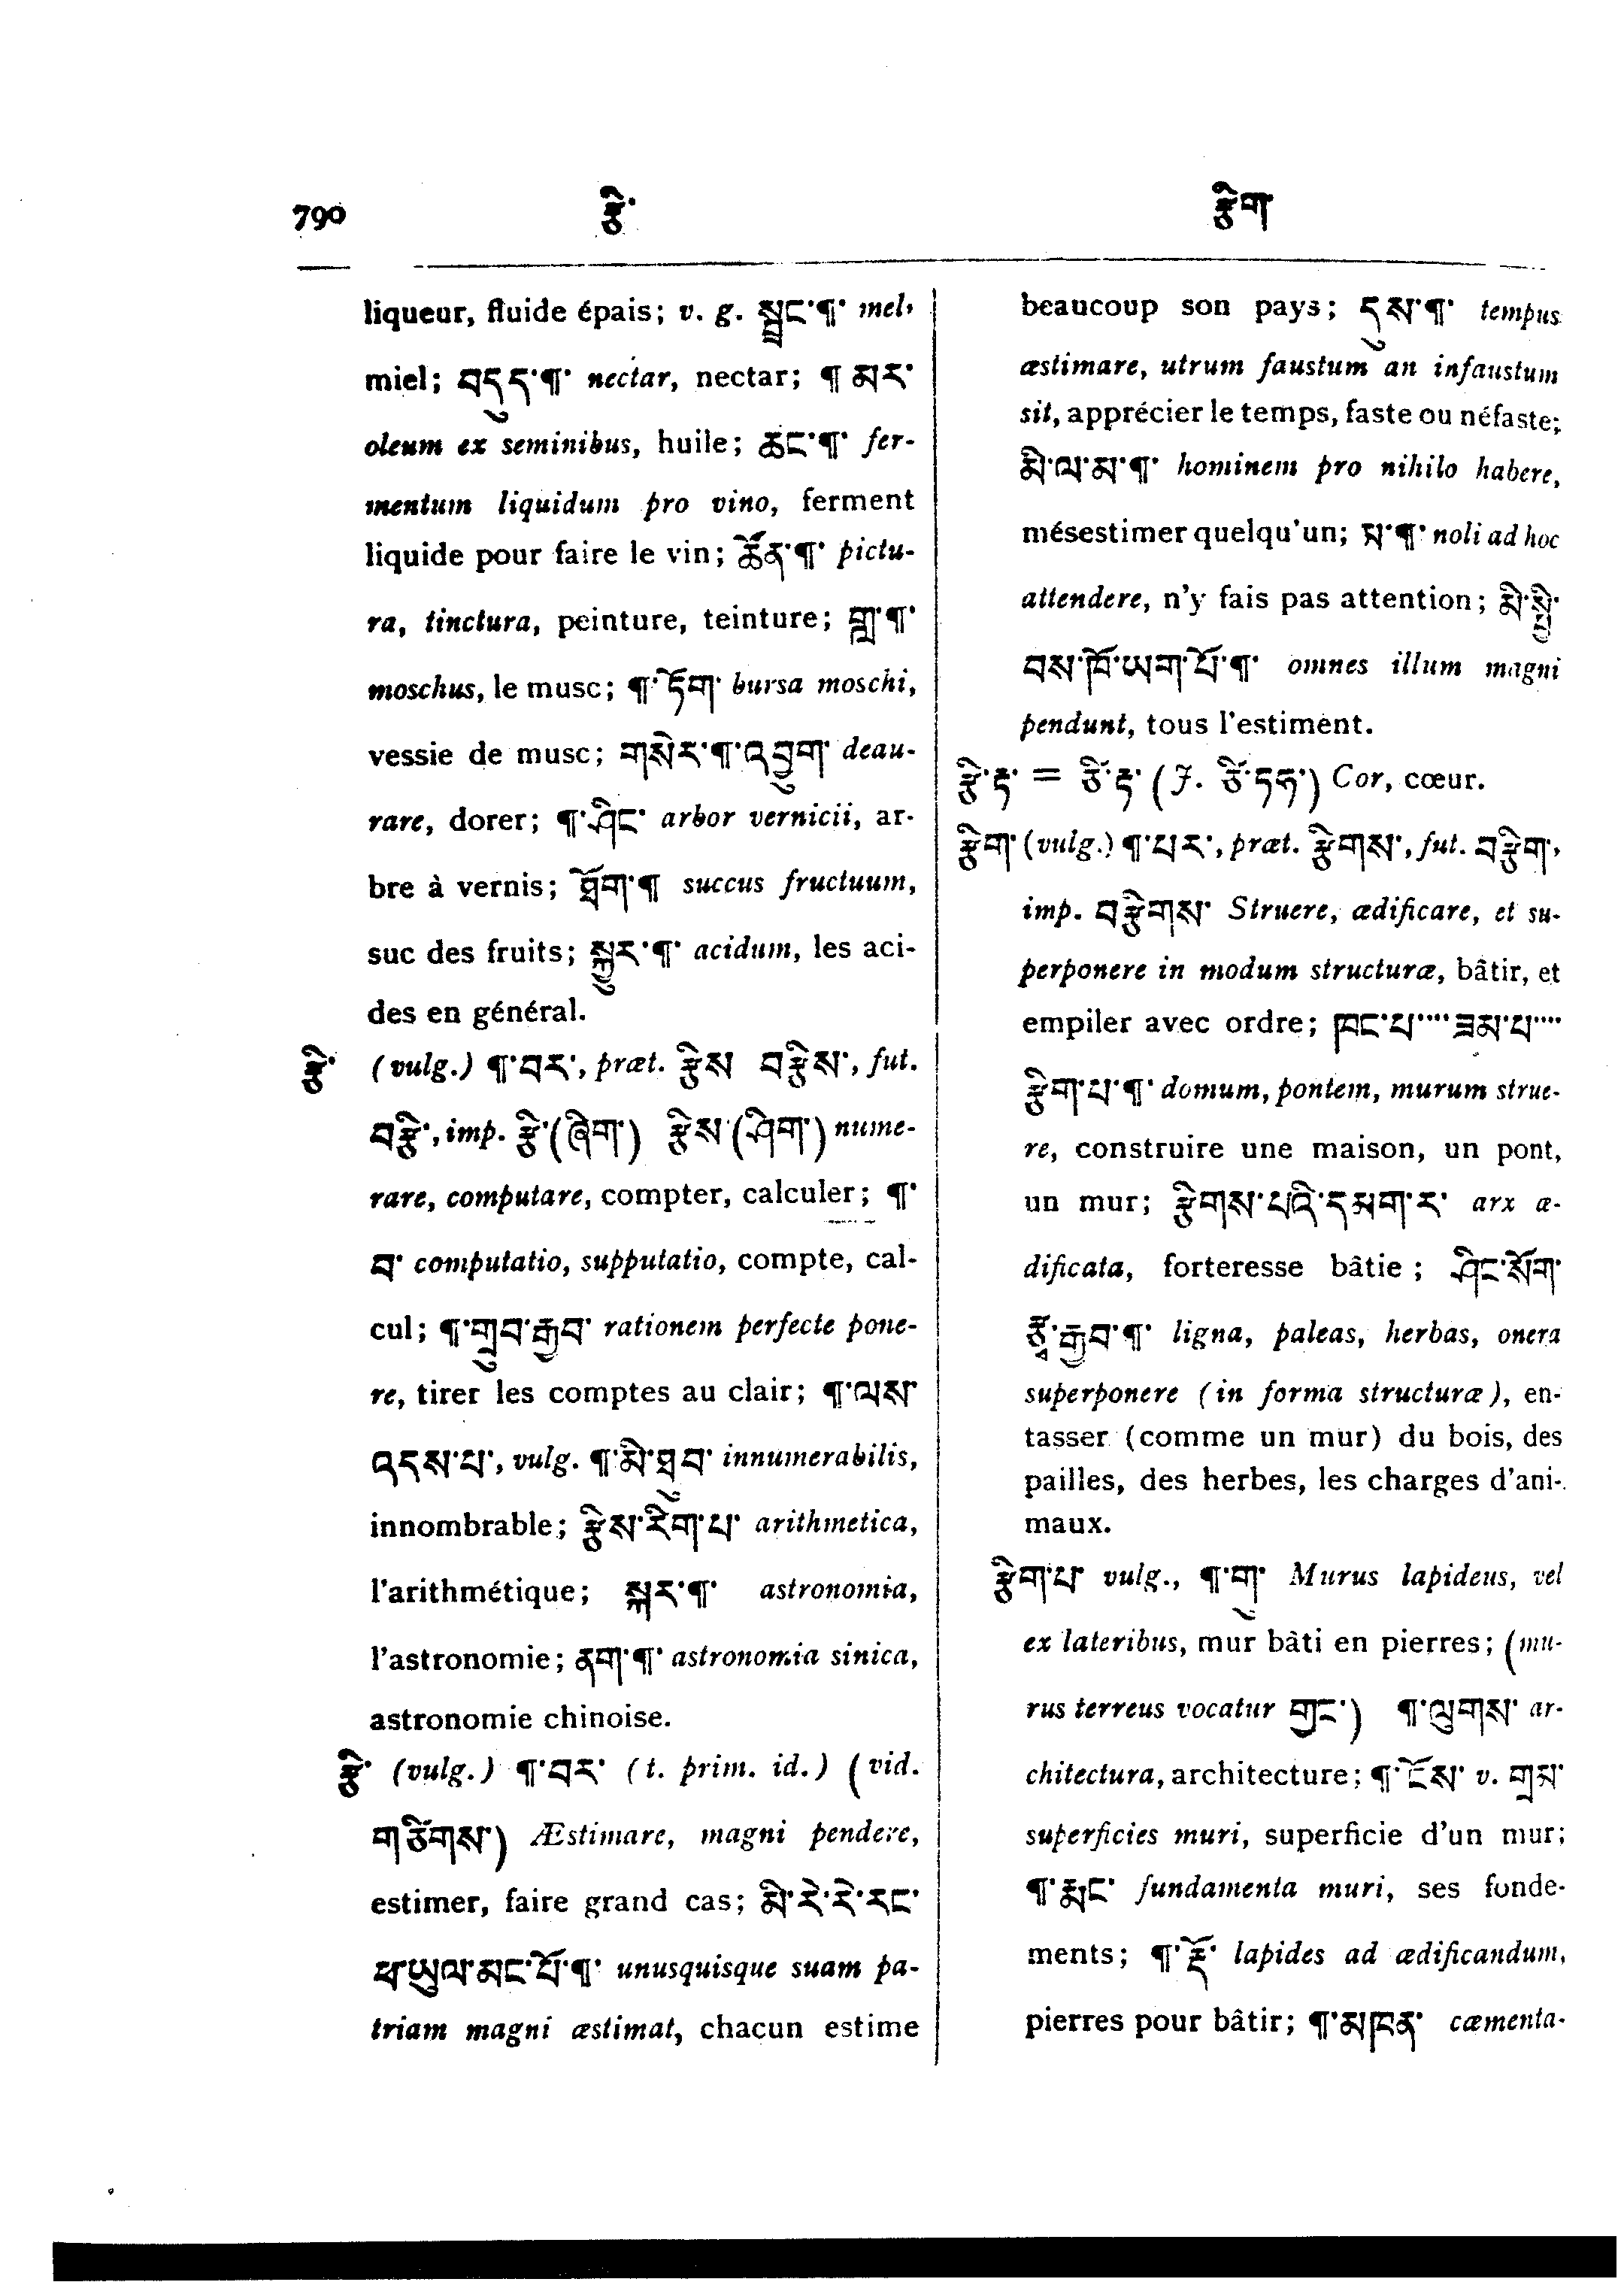 790 རྩི་ རྩིག
liqueur, fluide épais; v. g. སྦྲང་¶་ mel,
miel; བདུད་¶་ nectar, nectar; ¶ མར་
oleum ex seminibus, huile; ཆང་¶་ fer-
mentum liquidum pro vino, ferment
liquide pour faire le vin; ཚོན་¶་ pictu-
ra, tinctura, peinture, teinture; གླ་¶་
moschus, le musc; ¶་ཏོག་ bursa moschi,
vessie de musc; གསེར་¶་འབྱུག་ deau-
rare, dorer; ¶་ཤིང་ arbor vernicii, ar-
bre à vernis; ཐོག་¶ succus fructuum,
suc des fruits; སྐྱུར་¶་ acidum, les aci-
des en général.
རྩི་ (vulg.) ¶་བར་, præt. རྩིས བརྩིས་, fut.
བརྩི་, imp. རྩི་(ཞིག་) རྩིས་(ཤིག་) nume-
rare, computare, compter, calculer; ¶་
བ་ computatio, supputatio, compte, cal-
cul; ¶་གྲུབ་རྒྱབ་ rationem perfecte pone-
re, tirer les comptes au clair; ¶་ལས་
འདས་པ་, vulg. ¶་མི་ཐུབ་ innumerabilis,
innombrable; རྩིས་རིག་པ་ arithmetica,
l'arithmétique; སྐར་¶་ astronomia,
l'astronomie; ནག་¶་ astronomia sinica,
astronomie chinoise.
རྩི་ (vulg.) ¶་བར་ (t. prim. id.) (vid.
གཙིགས་) Æstimare, magni pendere,
estimer, faire grand cas; མི་རེ་རེ་རང་
ཕ་ཡུལ་མང་པོ་¶་ unusquisque suam pa-
triam magni æstimat, chacun estime
beaucoup son pays; དུས་¶་ tempus
æstimare, utrum faustum an infaustum
sit, apprécier le temps, faste ou néfaste;
མི་ལ་མ་¶་ hominem pro nihilo habere,
mésestimer quelqu'un; མ་¶་ noli ad hoc
attendere, n'y fais pas attention; མི་སྤྱི་
བས་ཁོ་ཡག་པོ་¶་ omnes illum magni
pendunt, tous l'estiment.
རྩི་ཏ་ = ཙི་ཏ་ (J. ཙི་ཏཏ་) Cor, cœur.
རྩིག་ (vulg.) ¶་པར་, præt. རྩིགས་, fut. བརྩིག་,
imp. བརྩིགས་ Struere, ædificare, et su-
perponere in modum structuræ, bâtir, et
empiler avec ordre; ཁང་པ་་་་ ཟམ་པ་་་་
རྩིག་པ་¶་ domum, pontem, murum strue-
re, construire une maison, un pont,
un mur; རྩིགས་པའི་དམག་ར་ arx æ-
dificata, forteresse bâtie; ཤིང་སོག་
རྩྭ་རྒྱབ་¶་ ligna, paleas, herbas, onera
superponere (in forma structuræ), en-
tasser (comme un mur) du bois, des
pailles, des herbes, les charges d'ani-
maux.
རྩིག་པ་ vulg., ¶་གུ་ Murus lapideus, vel
ex lateribus, mur bâti en pierres; (mu-
rus terreus vocatur གྱང་) ¶་ལུགས་ ar-
chitectura, architecture; ¶་ངོས་ v. གྲམ་
superficies muri, superficie d'un mur;
¶་རྨང་ fundamenta muri, ses fonde-
ments; ¶་རྡོ་ lapides ad ædificandum,
pierres pour bâtir; ¶་མཁན་ cæmenta-